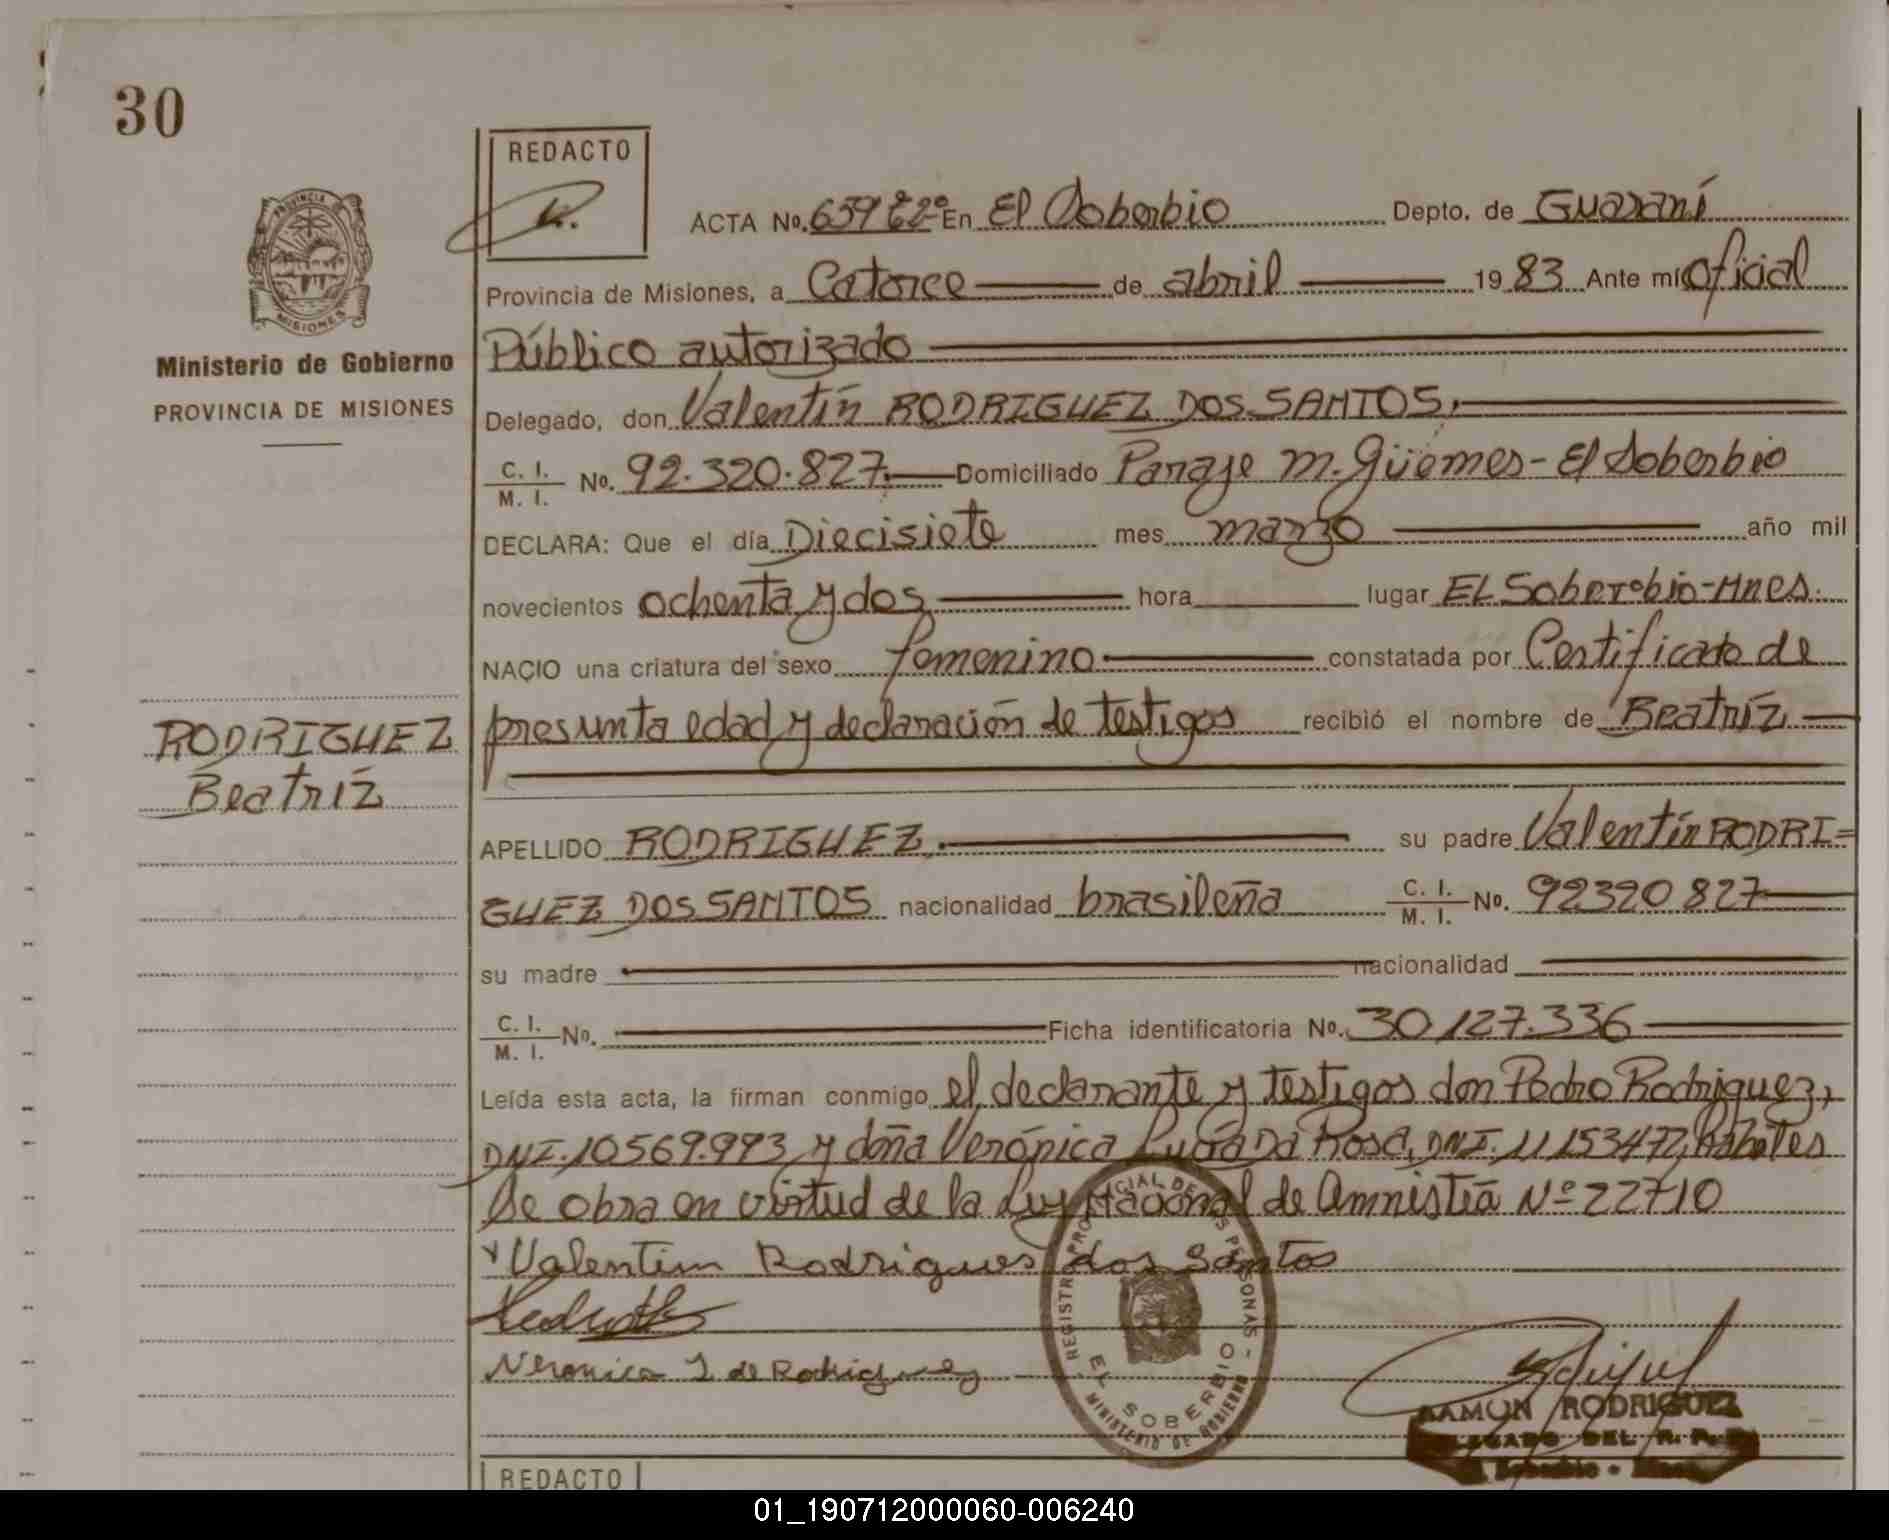 30
REDACTO
PROVINCIA
MISIONES
Ministerio de Gobierno
PROVINCIA DE MISIONES
ACTA No. 659 En El Soberbio Depto. de Guaraní
Provincia de Misiones, a Catorce de abril 1983 Ante mí Oficial
Público autorizado
Delegado, don Valentín RODRIGUEZ DOS SANTOS,
C. I. / M. I. No. 92.320.827. Domiciliado Paraje M. Güemes - El Soberbio
DECLARA: Que el día Diecisiete mes marzo año mil
novecientos ochenta y dos hora lugar EL Soberbio-Mnes.
NACIO una criatura del sexo femenino constatada por Certificado de
presunta edad y declaración de testigos recibió el nombre de Beatríz
RODRIGUEZ
Beatríz
APELLIDO RODRIGUEZ su padre Valentín RODRI=
GUEZ DOS SANTOS nacionalidad brasileña C. I. / M. I. No. 92320827
su madre nacionalidad
C. I. / M. I. No. Ficha identificatoria No. 30127.336
Leída esta acta, la firman conmigo el declarante y testigos don Pedro Rodriguez,
DNI. 10569.993 y doña Verónica Lucía Da Rosa, DNI. 11153477, hábiles
Se obra en virtud de la Ley Nacional de Amnistía Nº 22710
Valentim Rodrigues dos Santos
Veronica L de Rodriguez
REGISTRO PROVINCIAL DE LAS PERSONAS -
EL SOBERBIO
MINISTERIO DE GOBIERNO
RAMON RODRIGUEZ
DELEGADO DEL R. P. P.
El Soberbio - Mnes.
REDACTO
01_190712000060-006240